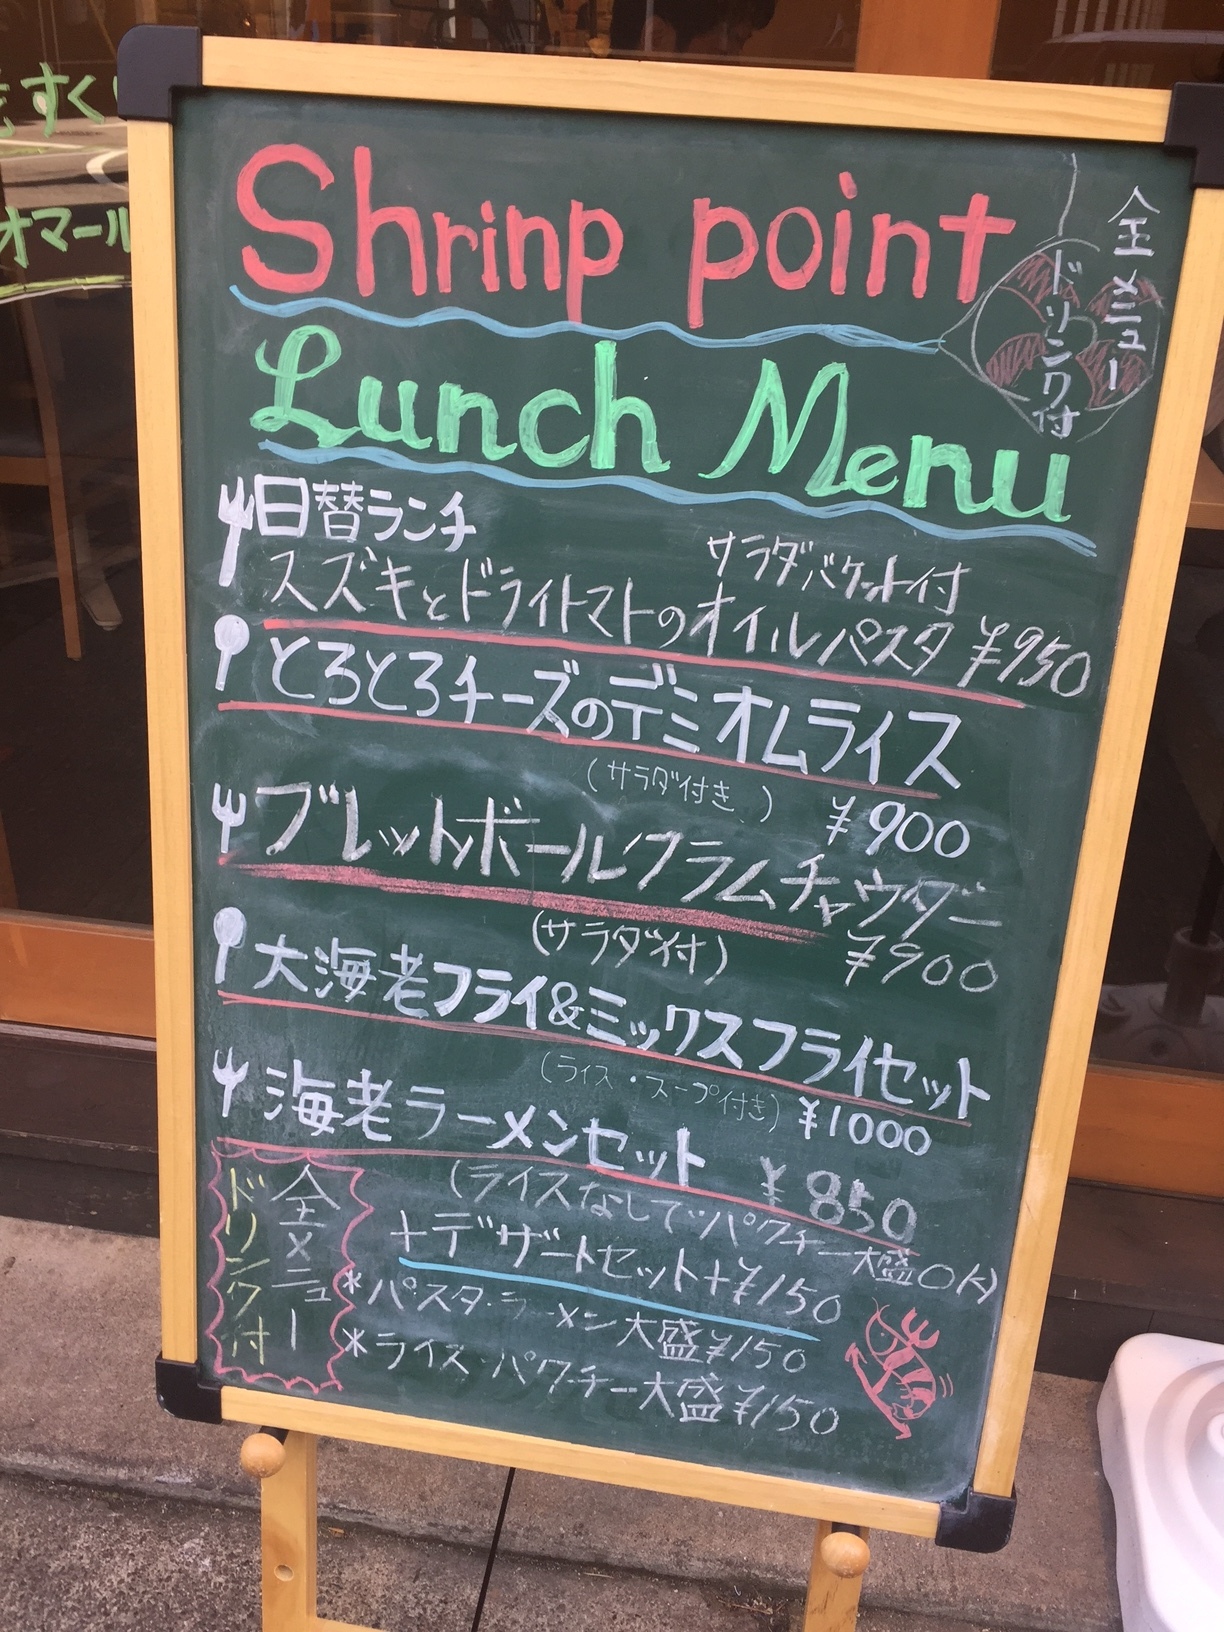 もすくり
オマール
Shrinp point
全メニュー
ドリンク付
Lunch Menu
日替ランチ
サラダバケット付
スズキとドライトマトのオイルパスタ ¥950
とろとろチーズのデミオムライス
(サラダ付き) ¥900
ブレットボールクラムチャウダー
(サラダ付) ¥900
大海老フライ&ミックスフライセット
(ライス・スープ付き) ¥1000
海老ラーメンセット ¥850
(ライスなしでパクチー大盛OK)
全メニュー
ドリンク付
+デザートセット+¥150
*パスタ・ラーメン大盛¥150
*ライス・パクチー大盛¥150